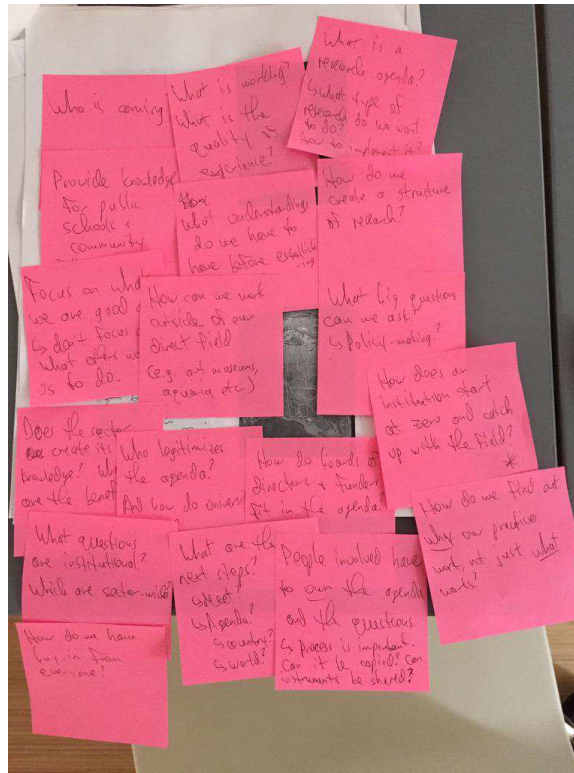 Who is coming
What is working?
What is the
quality of
experience?
What is a
research agenda?
↳ what type of
research do we want
to do?
how to implement it?
Provide knowledge
For public
schools +
community
what understandings
do we have to
have before establish
-ing
How do we
create a structure
of research?
Focus on what
we are good
↳ don't focus
what others
us to do.
How can we work
outside of our
direct field
(e.g. art museums,
aquaria, etc)
What big questions
can we ask?
↳ Policy-making?
How does an
institution start
at zero and catch
up with the field?
*
Does the sector
create its
knowledge?
are the
Who legitimizes
the agenda?
And how do
How do boards of
directors & funders
fit in the agenda?
How do we find out
why our practices
work, not just what
works?
What questions
are institutional?
Which are sector-wide
What are the
next steps?
↳ Agenda?
↳ country?
↳ world?
People involved have
to own the agenda
and the questions
↳ Process is important.
Can it be copied? Can
instruments be shared?
How do we have
buy-in from
everyone?